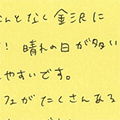 んとなく金沢に
! 晴れの日が多い
やすいです。
フェがたくさんある